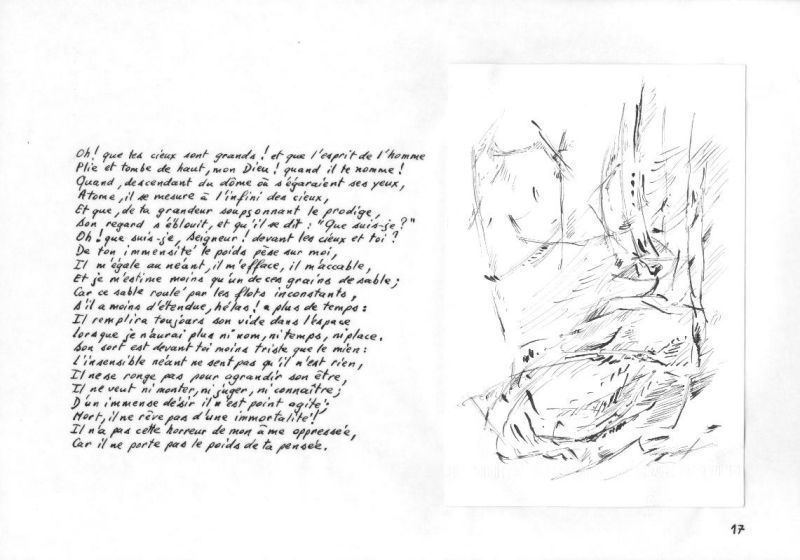 Oh! que les cieux sont grands! et que l'esprit de l'homme
Plie et tombe de haut, mon Dieu! quand il te nomme!
Quand, descendant du dôme où s'égaraient ses yeux,
Atome, il se mesure à l'infini des cieux,
Et que, de ta grandeur soupçonnant le prodige,
Son regard s'éblouit, et qu'il se dit: "Que suis-je?"
Oh! que suis-je, Seigneur! devant les cieux et toi?
De ton immensité le poids pèse sur moi,
Il m'égale au néant, il m'efface, il m'accable,
Et je m'estime moins qu'un de ces grains de sable;
Car ce sable roulé par les flots inconstants,
S'il a moins d'étendue, hélas! a plus de temps:
Il remplira toujours son vide dans l'espace
lorsque je n'aurai plus ni nom, ni temps, ni place.
Son sort est devant toi moins triste que le mien:
L'insensible néant ne sent pas qu'il n'est rien,
Il ne se ronge pas pour agrandir son être,
Il ne veut ni monter, ni juger, ni connaître;
D'un immense désir il n'est point agité;
Mort, il ne rêve pas d'une immortalité!
Il n'a pas cette horreur de mon âme oppressée,
Car il ne porte pas le poids de ta pensée.
17